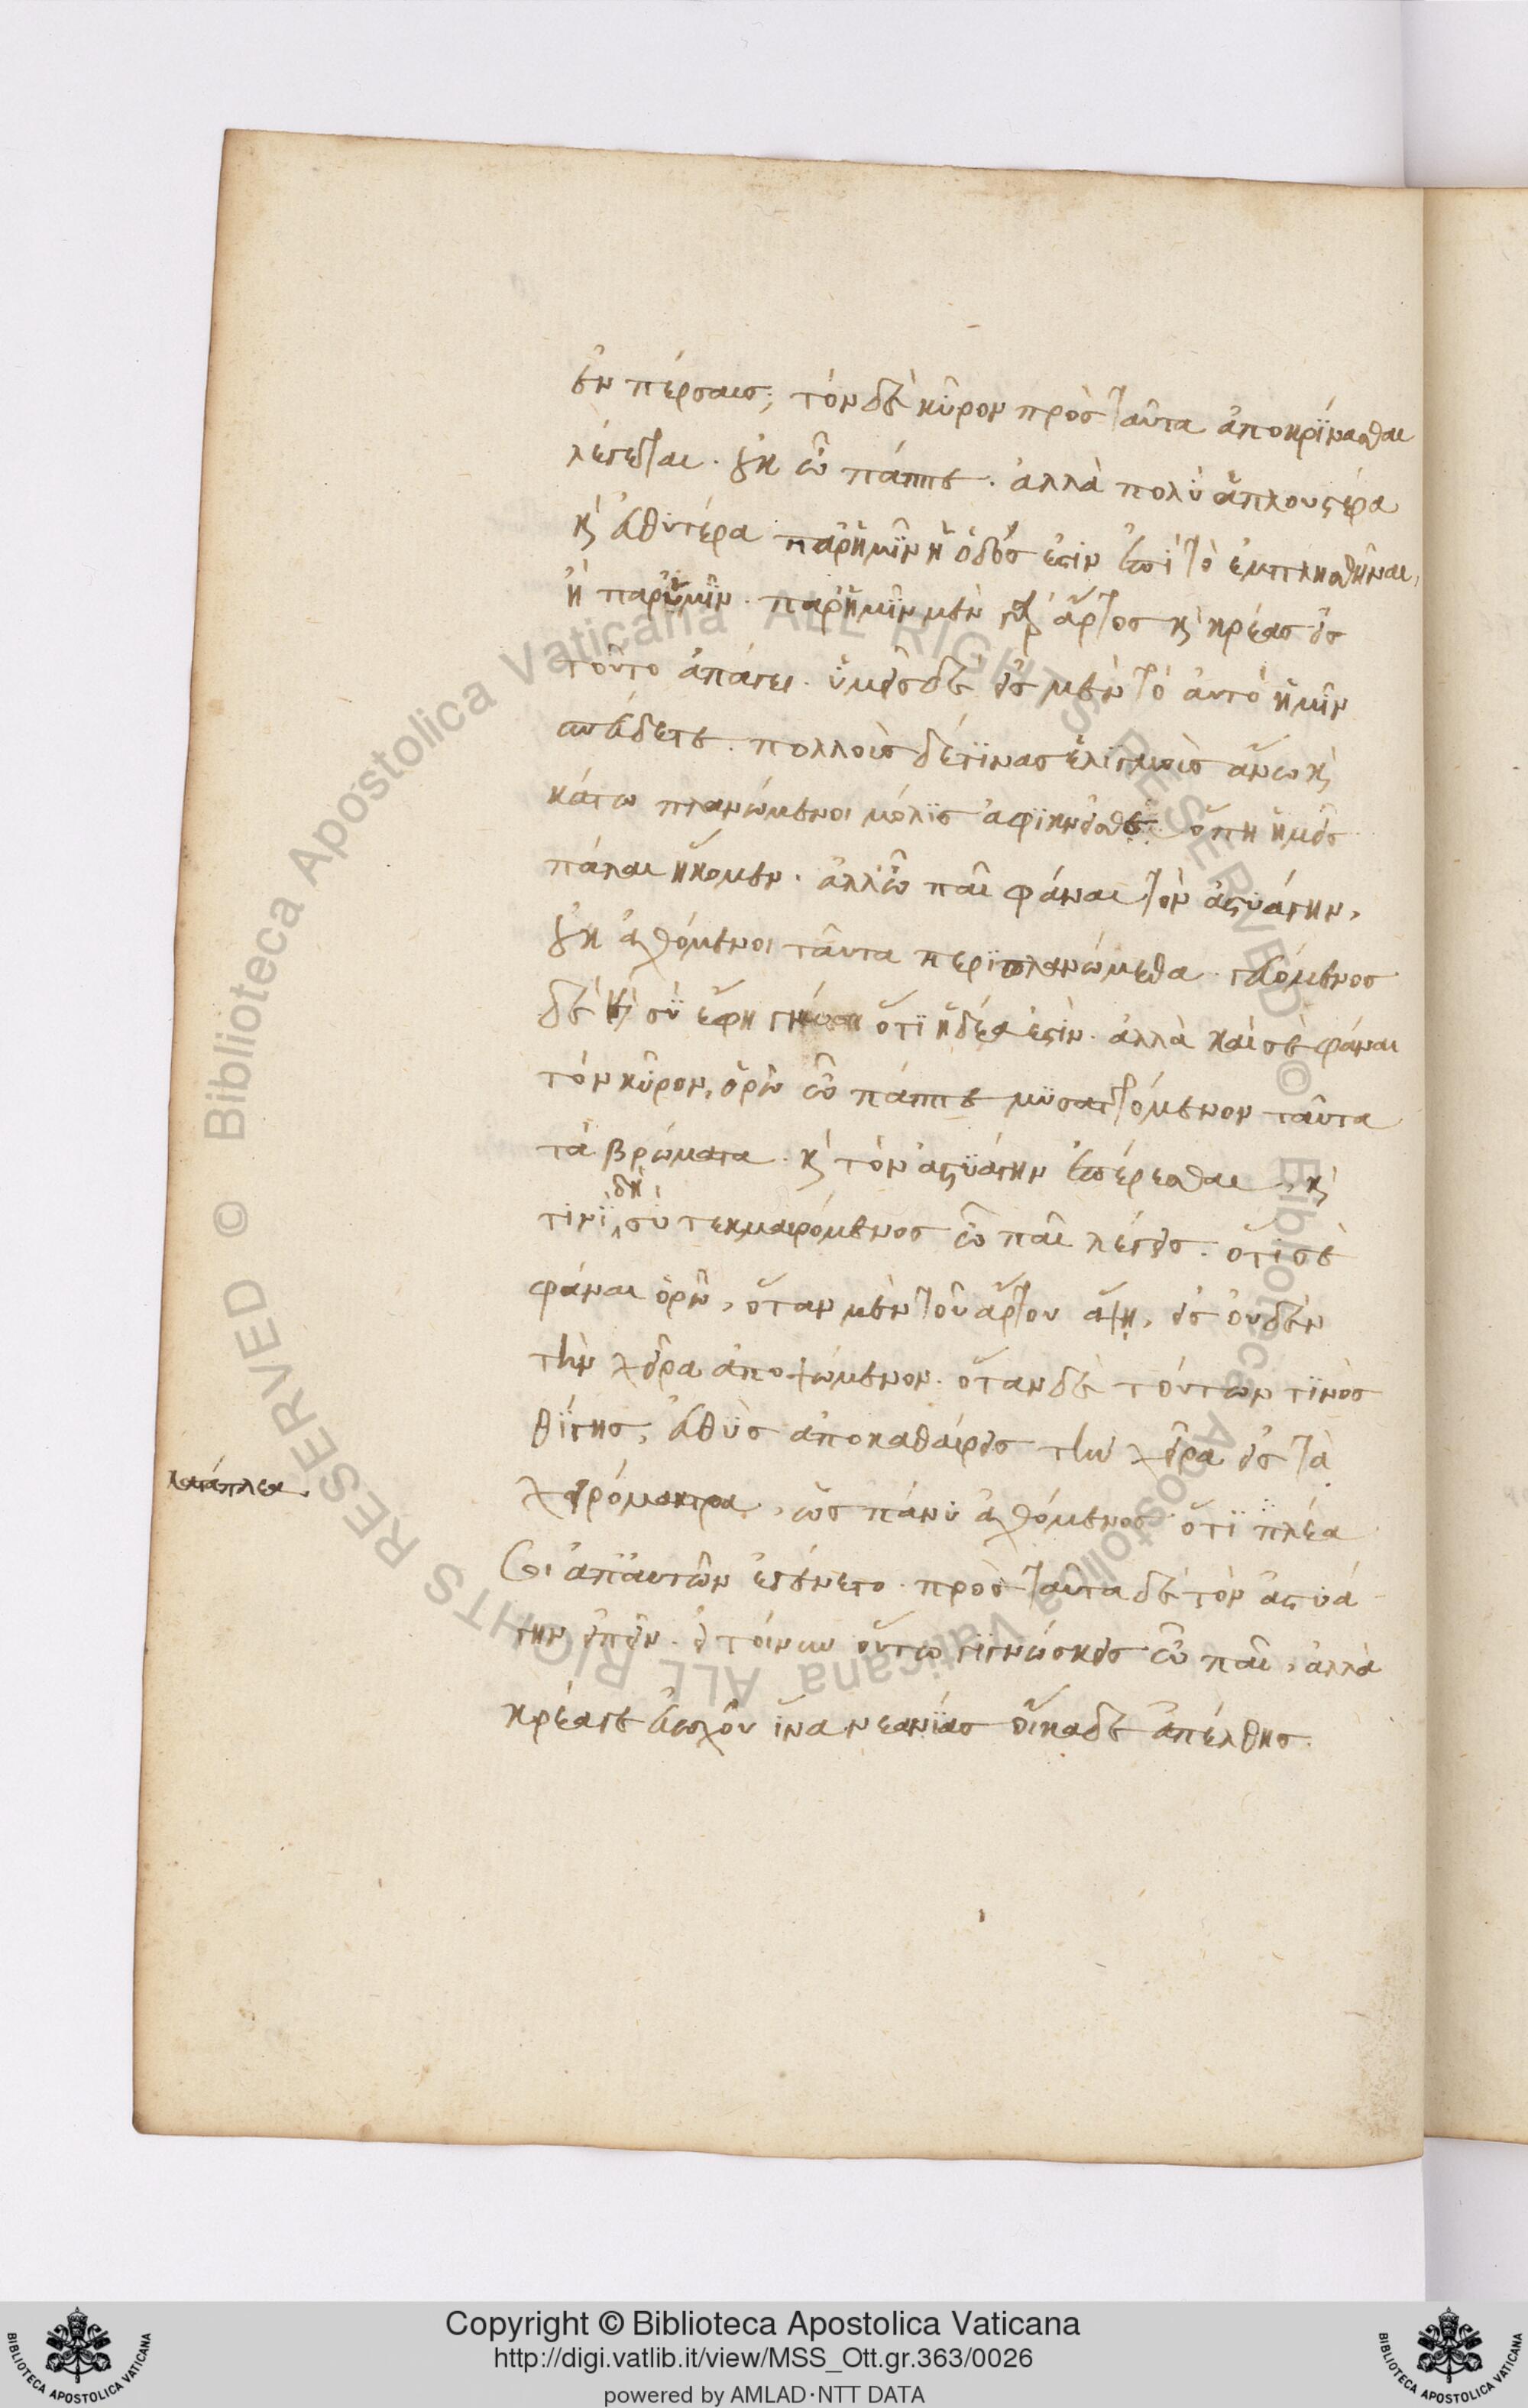 ἐν πέρσαις; τὸν δὲ κῦρον πρὸς ταῦτα ἀποκρίνασθαι
λέγεται. οὐκ ὦ πάππε. ἀλλὰ πολὺ ἁπλουστέρα
καὶ εὐθυτέρα παρ' ἡμῖν ἡ ὁδός ἐστιν ἐπὶ τὸ ἐμπλησθῆναι,
ἢ παρ' ὑμῖν. παρ' ἡμῖν μὲν γὰρ ἄρτος καὶ κρέας εἰς
τοῦτο ἀπάγει. ὑμεῖς δὲ εἰς μὲν τὸ αὐτὸ ἡμῖν
σπεύδετε. πολλοὺς δέ τινας ἑλιγμοὺς ἄνω καὶ
κάτω πλανώμενοι μόλις ἀφικνεῖσθε ὅπη ἡμεῖς
πάλαι ἥκομεν. ἀλλ' ὦ παῖ φάναι τὸν ἀστυάγην,
οὐκ ἀχθόμενοι ταῦτα περιπλανώμεθα. γευόμενος
δὲ καὶ σὺ ἔφη γνώση ὅτι ἡδέα ἐστίν. ἀλλὰ καὶ σὲ φάναι
τὸν κῦρον, ὁρῶ ὦ πάππε μυσαττόμενον ταῦτα
τὰ βρώματα. καὶ τὸν ἀστυάγην ἐπέρεσθαι, καὶ
τίνι δὴ σὺ τεκμαιρόμενος ὦ παῖ λέγεις. ὅτι σὲ
φάναι ὁρῶ, ὅταν μὲν τοῦ ἄρτου ἅψη, εἰς οὐδὲν
τὴν χεῖρα ἀποψώμενον. ὅταν δὲ τούτων τινὸς
θίγης, εὐθὺς ἀποκαθαίρεις τὴν χεῖρα εἰς τὰ
χειρόμακτρα, ὡς πάνυ ἀχθόμενος ὅτι πλέα
κατάπλεα.
σοι ἀπ' αὐτῶν ἐγένετο. πρὸς ταῦτα δὲ τὸν ἀστυά
γην εἰπεῖν. εἰ τοίνυν οὕτω γιγνώσκεις ὦ παῖ, ἀλλὰ
κρέα γε εὐωχοῦ ἵνα νεανίας οἴκαδε ἀπέλθης.
Copyright © Biblioteca Apostolica Vaticana
http://digi.vatlib.it/view/MSS_Ott.gr.363/0026
powered by AMLAD·NTT DATA
BIBLIOTECA APOSTOLICA VATICANA
BIBLIOTECA APOSTOLICA VATICANA
Biblioteca Apostolica Vaticana ALL RIGHTS RESERVED ©
Biblioteca Apostolica Vaticana ALL RIGHTS RESERVED ©